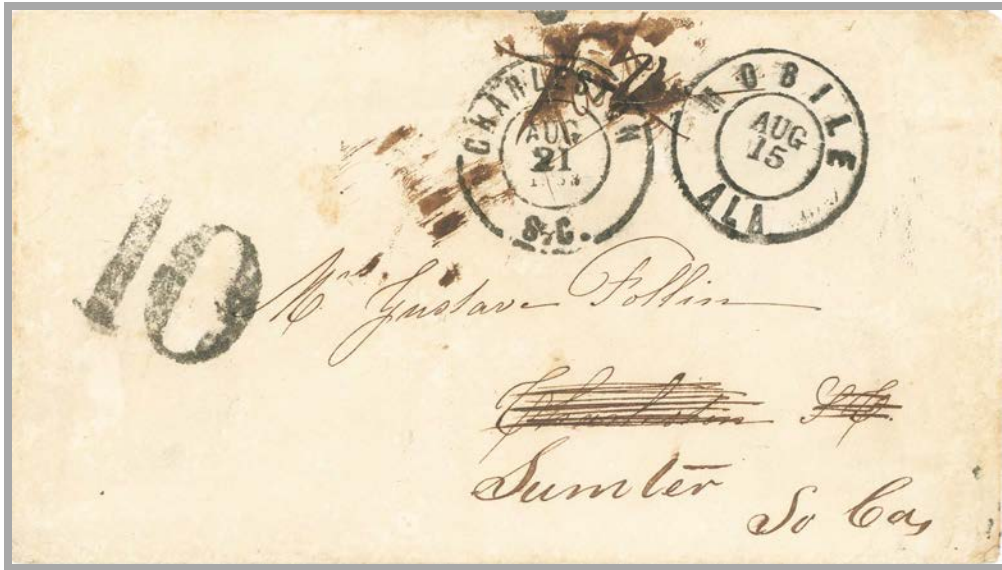 CHARLESTON
AUG
21
S.C.
MOBILE
AUG
15
ALA
10
Mr Gustave Follin
Charleston SC.
Sumter
So Ca